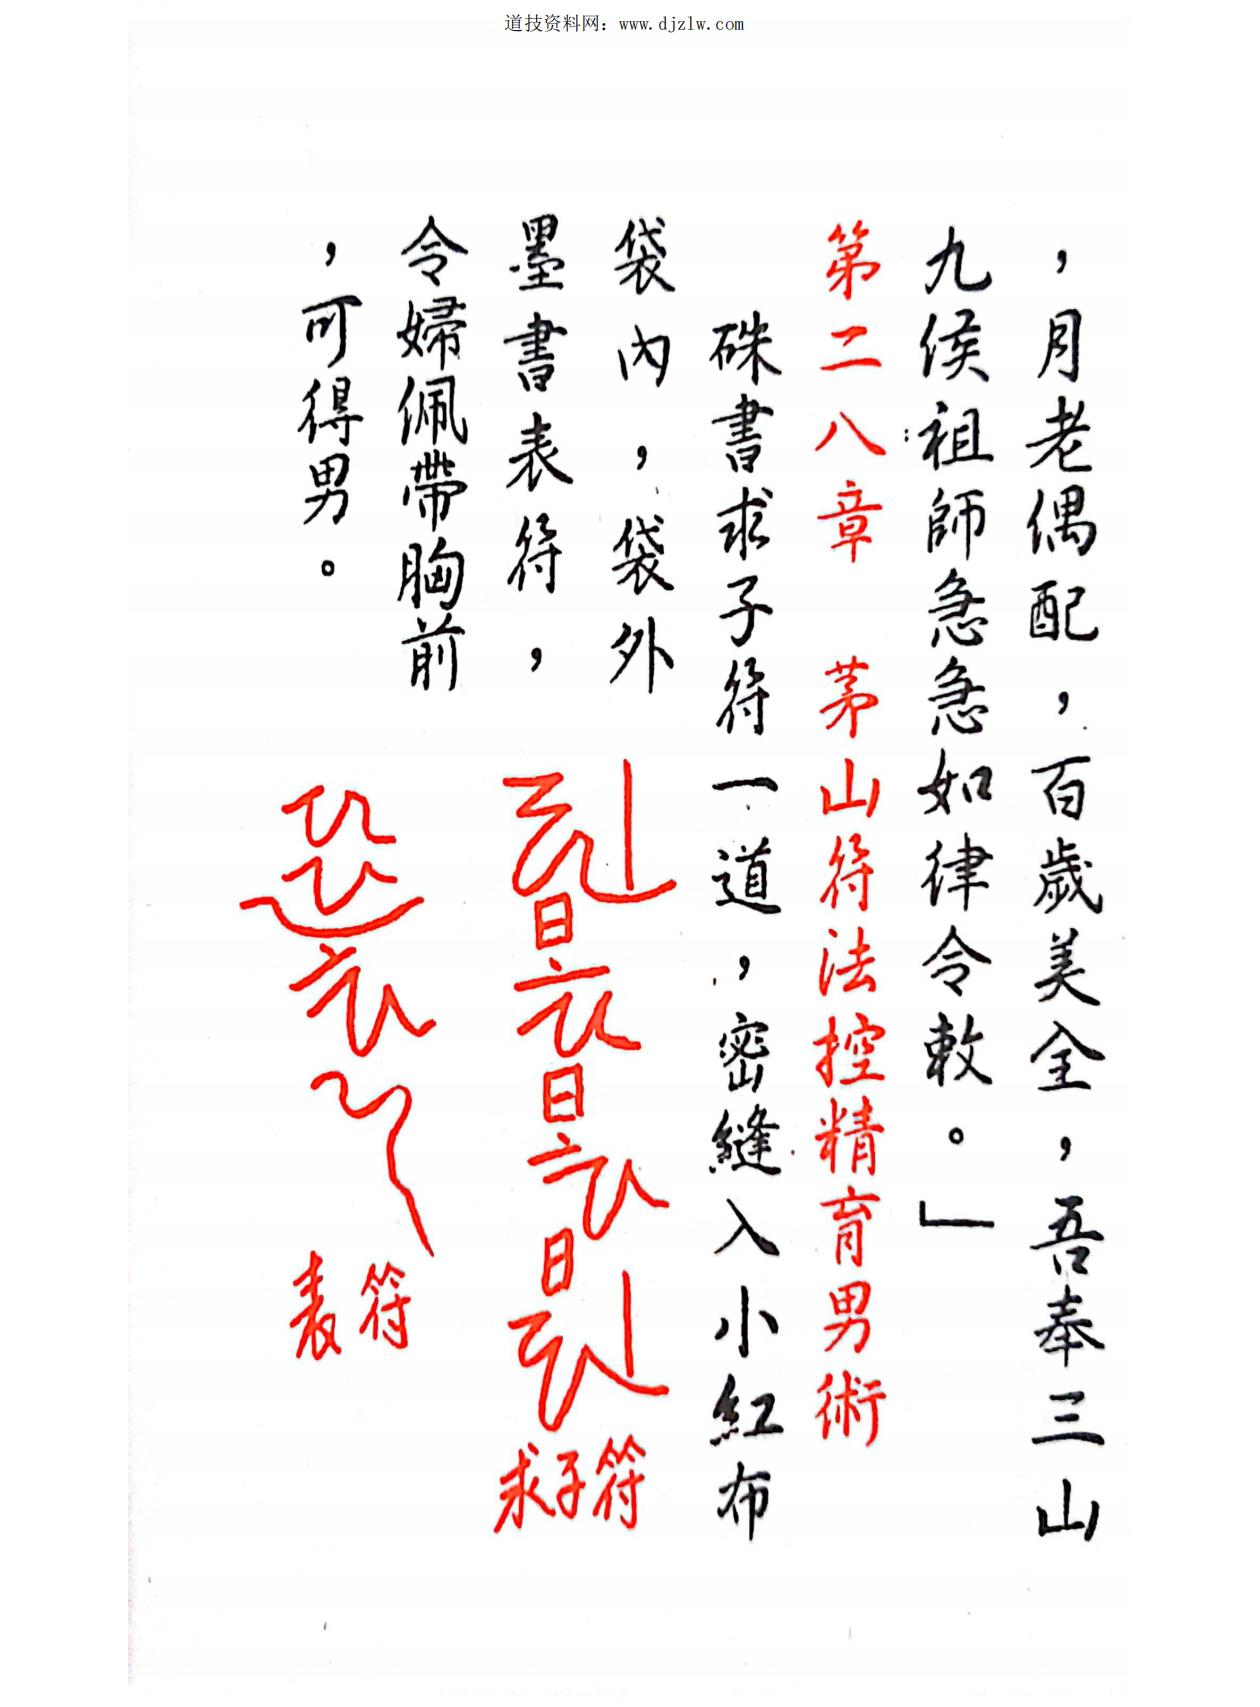 道技资料网：www.djzlw.com
，月老偶配，百歲美全，吾奉三山
九侯祖師急急如律令敕。」
第二八章 茅山符法控精育男術
硃書求子符一道，密縫入小紅布
袋內，袋外
墨書表符，
令婦佩帶胸前
，可得男。
求子符
表符